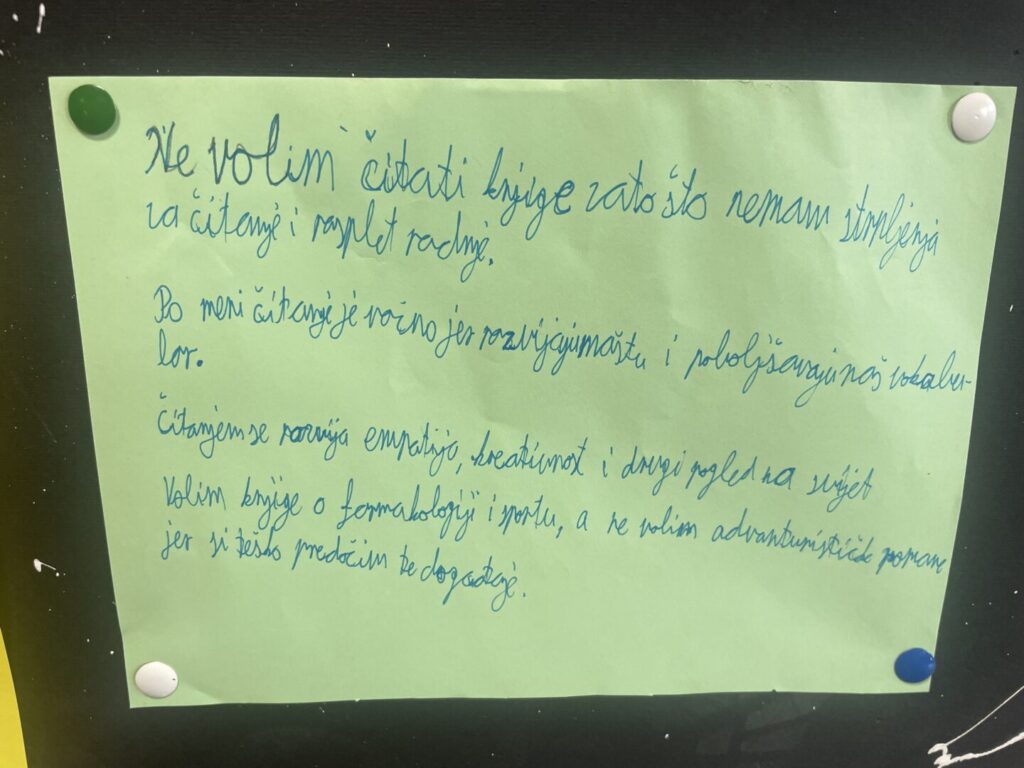 Ne volim čitati knjige zato što nemam strpljenja
za čitanje i rasplet radnje.
Po meni čitanje je važno jer razvijaju maštu i poboljšavaju naš vokabu-
lar.
Čitanjem se razvija empatija, kreativnost i drugi pogled na svijet
Volim knjige o farmakologiji i sportu, a ne volim advanturističke romane
jer si teško predočim te događaje.